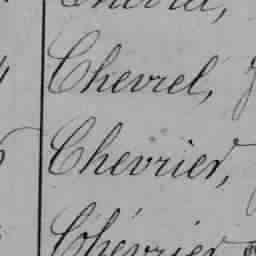 Chevrel,
Chevrier,
Chévrier